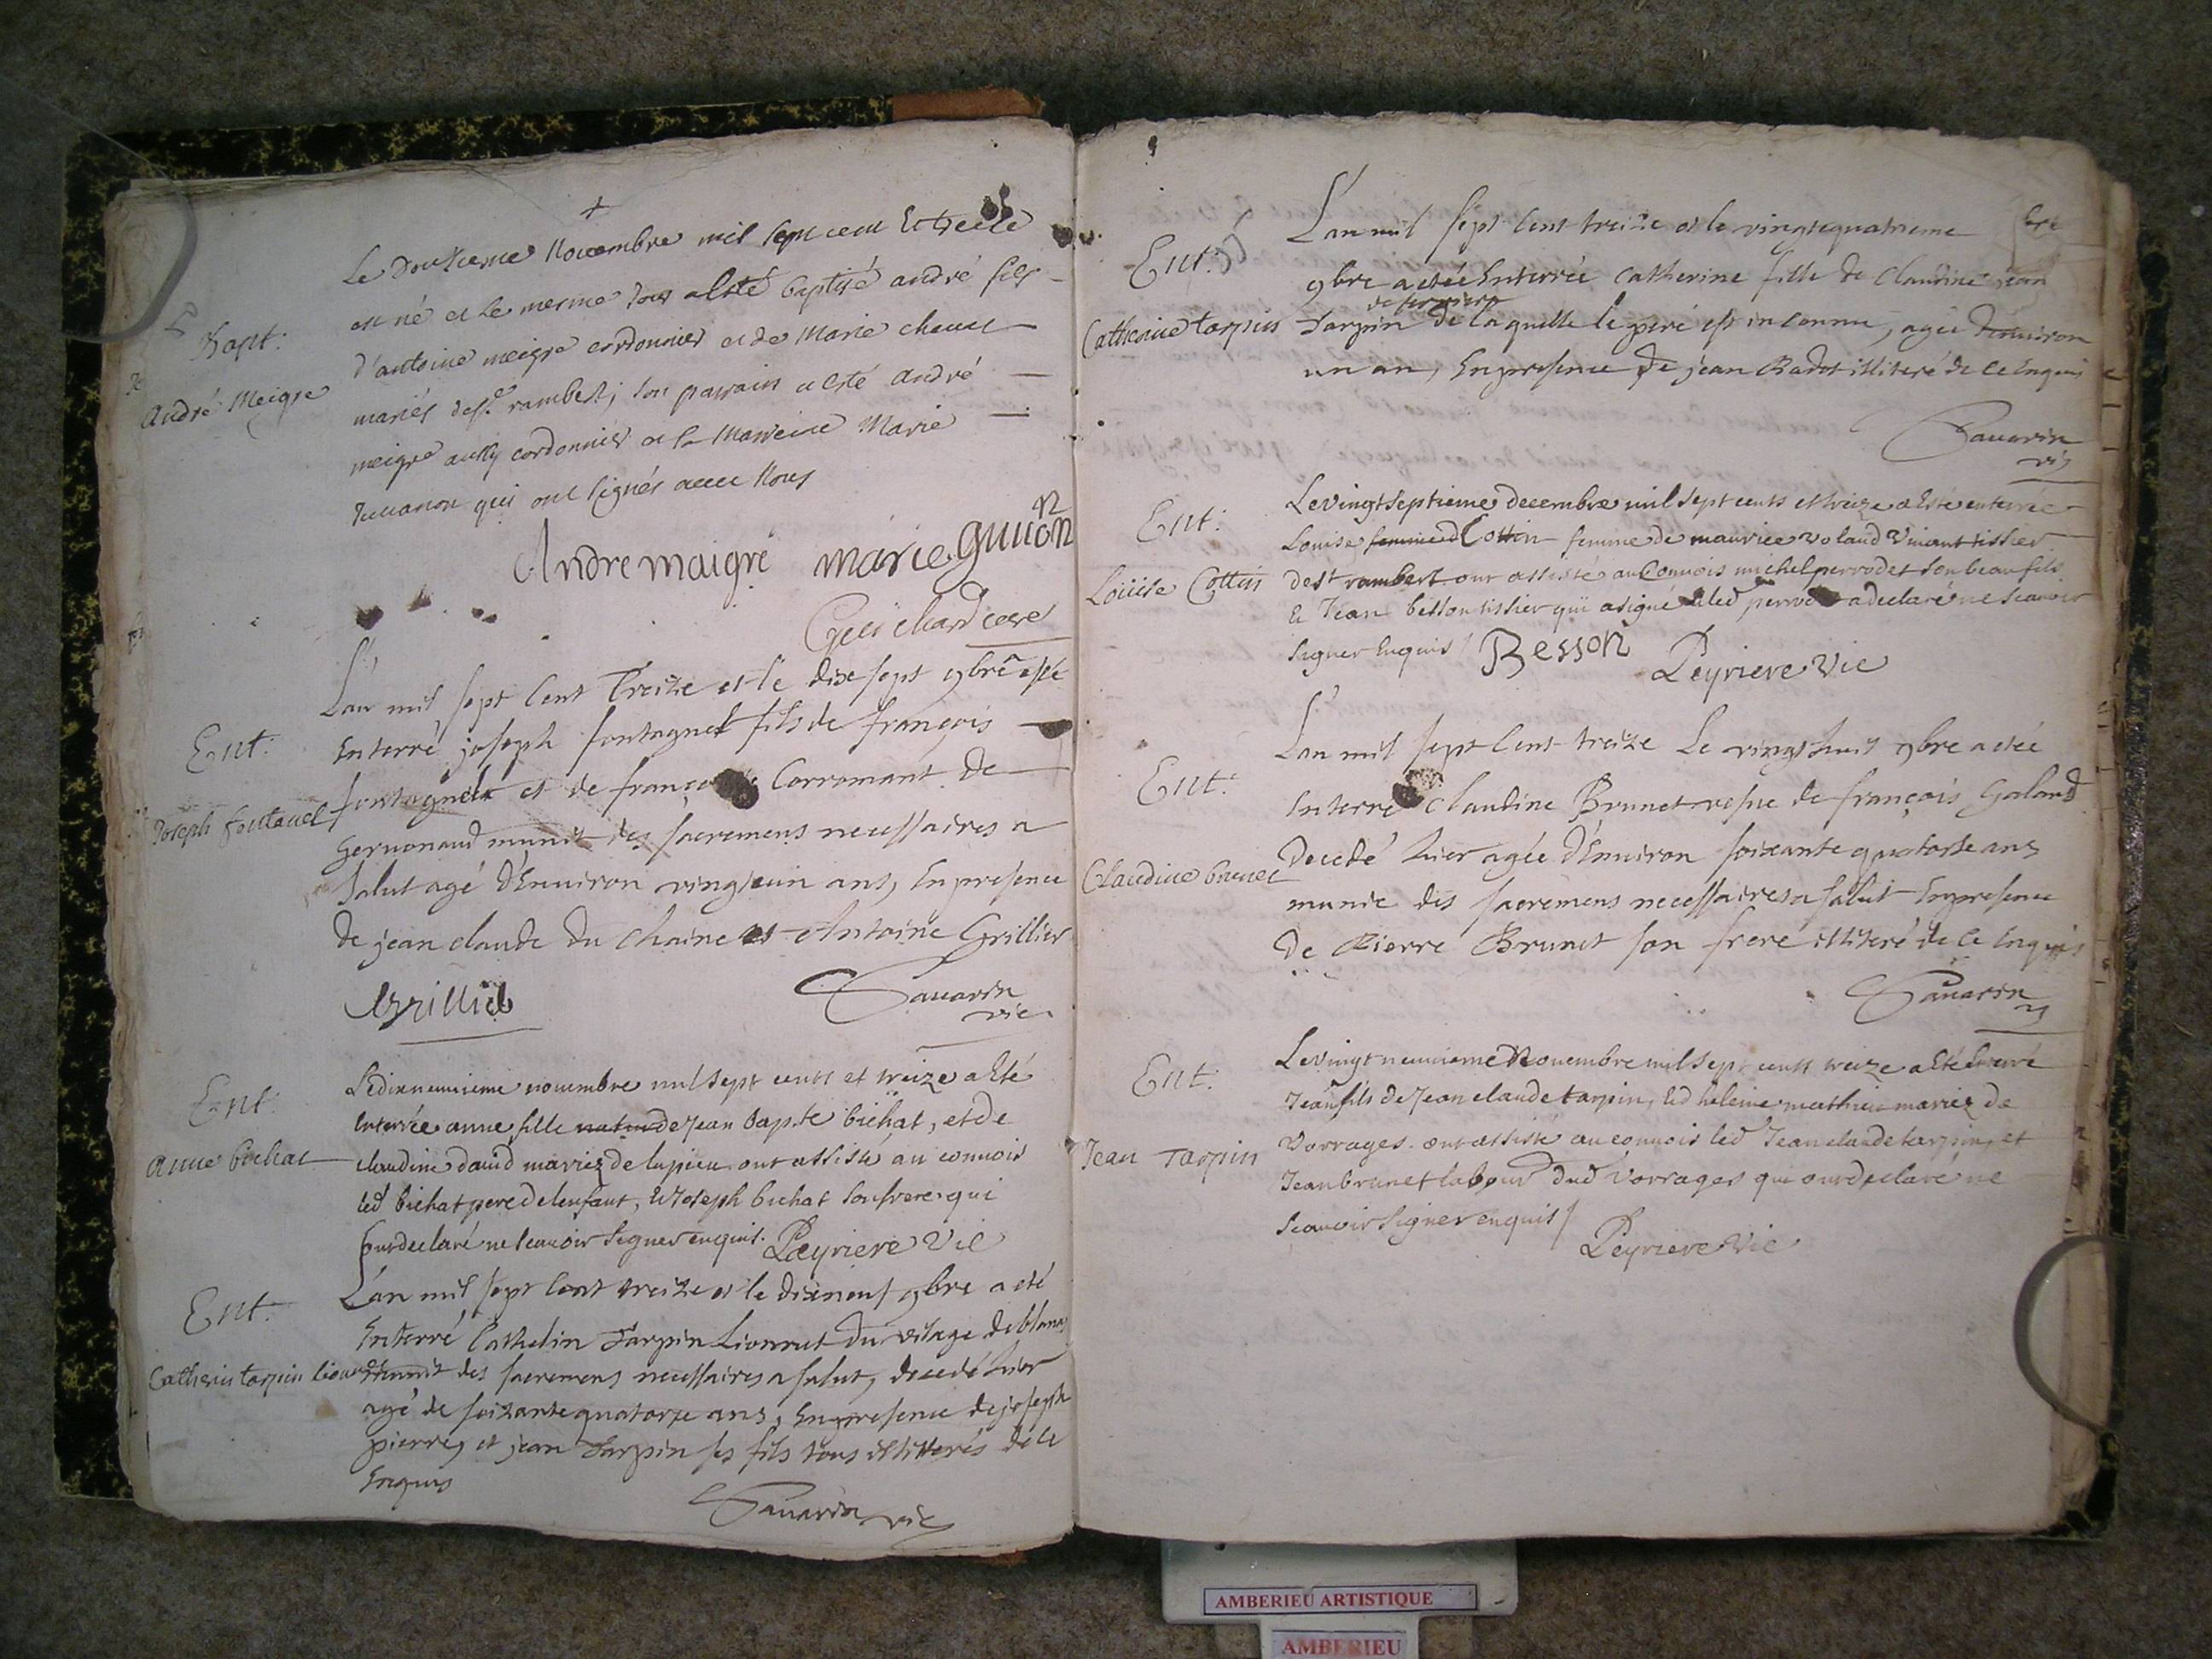 Bapt:
André Meigre
Le Douzieme Novembre mil sept cent et treize
est né et le mesme Jour a esté baptisé andré fils
d'antoine meigre cordonnier et de Marie
mariés de st rambert; son parrain a esté andré
meigre aussy cordonnier et la Marreine Marie
qui ont signés avec Nous
Andre maigre marie guuion
Guichard curé
Ent:
Joseph fontanel
L'an mil sept cent Treize et le dix sept 9bre
Enterré joseph fontagnel fils de françois
et de Corromant de
munit des sacremens necessaires a
salut agé d'Enuiron vingt un ans, En presence
de jean claude du chaine et Antoine Grillier
Sauarin
vic
Ent:
anne bichat
Le dixneuuieme nouembre mil sept cents et treize a Eté
Enterrée anne fille de Jean bapte bichat, et de
claudine dauid mariez de lupieu ont assisté au conuois
led bichat pere de lenfant, et Joseph bichat son frere qui
ont declaré ne scauoir signer enquis. Peyriere vic
Ent:
Cathelin tarpin
L'an mil sept cent treize et le dixneuf 9bre a eté
Enterré Cathelin Tarpin Lionnet du vilage de blana
munit des sacremens necessaires a salut, decedé hier
agé de soixante quatorze ans, En presence de joseph
pierre, et jean Tarpin ses fils tous illitterés de ce
Enquis
Sauarin vic
Ent:
Catherine tarpin
L'an mil sept cent treize et le vingtquatrieme
9bre a etée Enterrée catherine fille de Claudine jean
Tarpin de laquelle le pere est inconnu, agée d'enuiron
un an, En presence de jean Radet illiteré de ce Enquis
Sauarin
vic
Ent:
Loüise Cottin
Le vingtseptieme decembre mil sept cents et treize a Esté enterrée
Louise femme d Cottin femme de maurice volaud viuant tissier
de st rambert ont assisté au Conuois michel perrodet son beau fils
et Jean besson tissier qui a signé a declaré ne scauoir
signer Enquis / Besson Peyriere vic
Ent:
Claudine brunet
L'an mil sept cent treize Le vingt huit 9bre a etée
Enterré claudine Brunet vefue de françois Goland
decedé hier agée d'Enuiron soixante quatorse ans
munie des sacremens necessaires a salut En presence
de Pierre Brunet son frere illiteré de ce Enquis
Sauarin
vic
Ent:
Jean Tarpin
Le vingt neuuieme Nouembre mil sept cents treize a Eté Enterré
Jean fils de Jean claude tarpin, Et d heleine matthieu mariez de
Vorrages. ont assisté au conuois led Jean claude tarpin, et
Jean brunet labour dud vorrages qui ont declaré ne
scauoir signer enquis /
Peyriere vic
AMBERIEU ARTISTIQUE
AMBERIEU